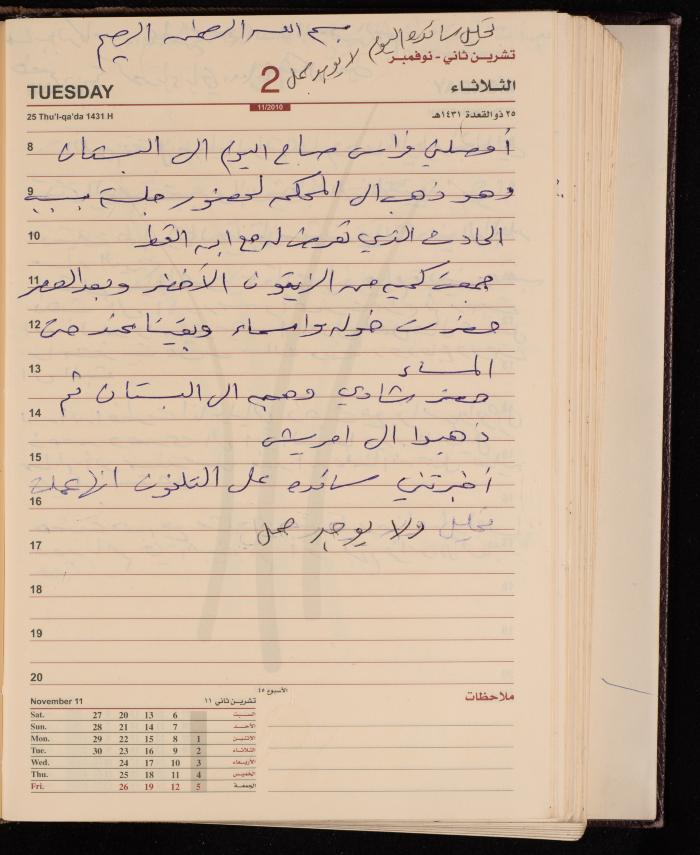 تحليل سائدة اليوم
بسم الله الرحمن الرحيم
لا يوجد حمل
تشرين ثاني - نوفمبر
TUESDAY 2 الثلاثاء
11/2010
25 Thu'l-qa'da 1431 H ٢٥ ذو القعدة ١٤٣١هـ
8 أوصلني فراس صباح اليوم الى البستان
9 وهو ذهب الى المحكمه لحضور جلسة بسبب
10 الحادث الذي تعرض له مع ابن القط
11 جمعت كميه من الزيتون الأخضر وبعد العصر
12 حضرت خوله واسماء وبقينا عند حتى
13 المساء
حضر شادي وصحبه الى البستان ثم
14
ذهبوا الى امريش
15
أخبرتني سائده على التلفون انها عملت
16
تحليل ولا يوجد حمل
17
18
19
20
November 11 تشرين ثاني ١١ الأسبوع ٤٥ ملاحظات
Sat. 27 20 13 6 السبت
Sun. 28 21 14 7 الأحد
Mon. 29 22 15 8 1 الاثنين
Tue. 30 23 16 9 2 الثلاثاء
Wed. 24 17 10 3 الأربعاء
Thu. 25 18 11 4 الخميس
Fri. 26 19 12 5 الجمعة